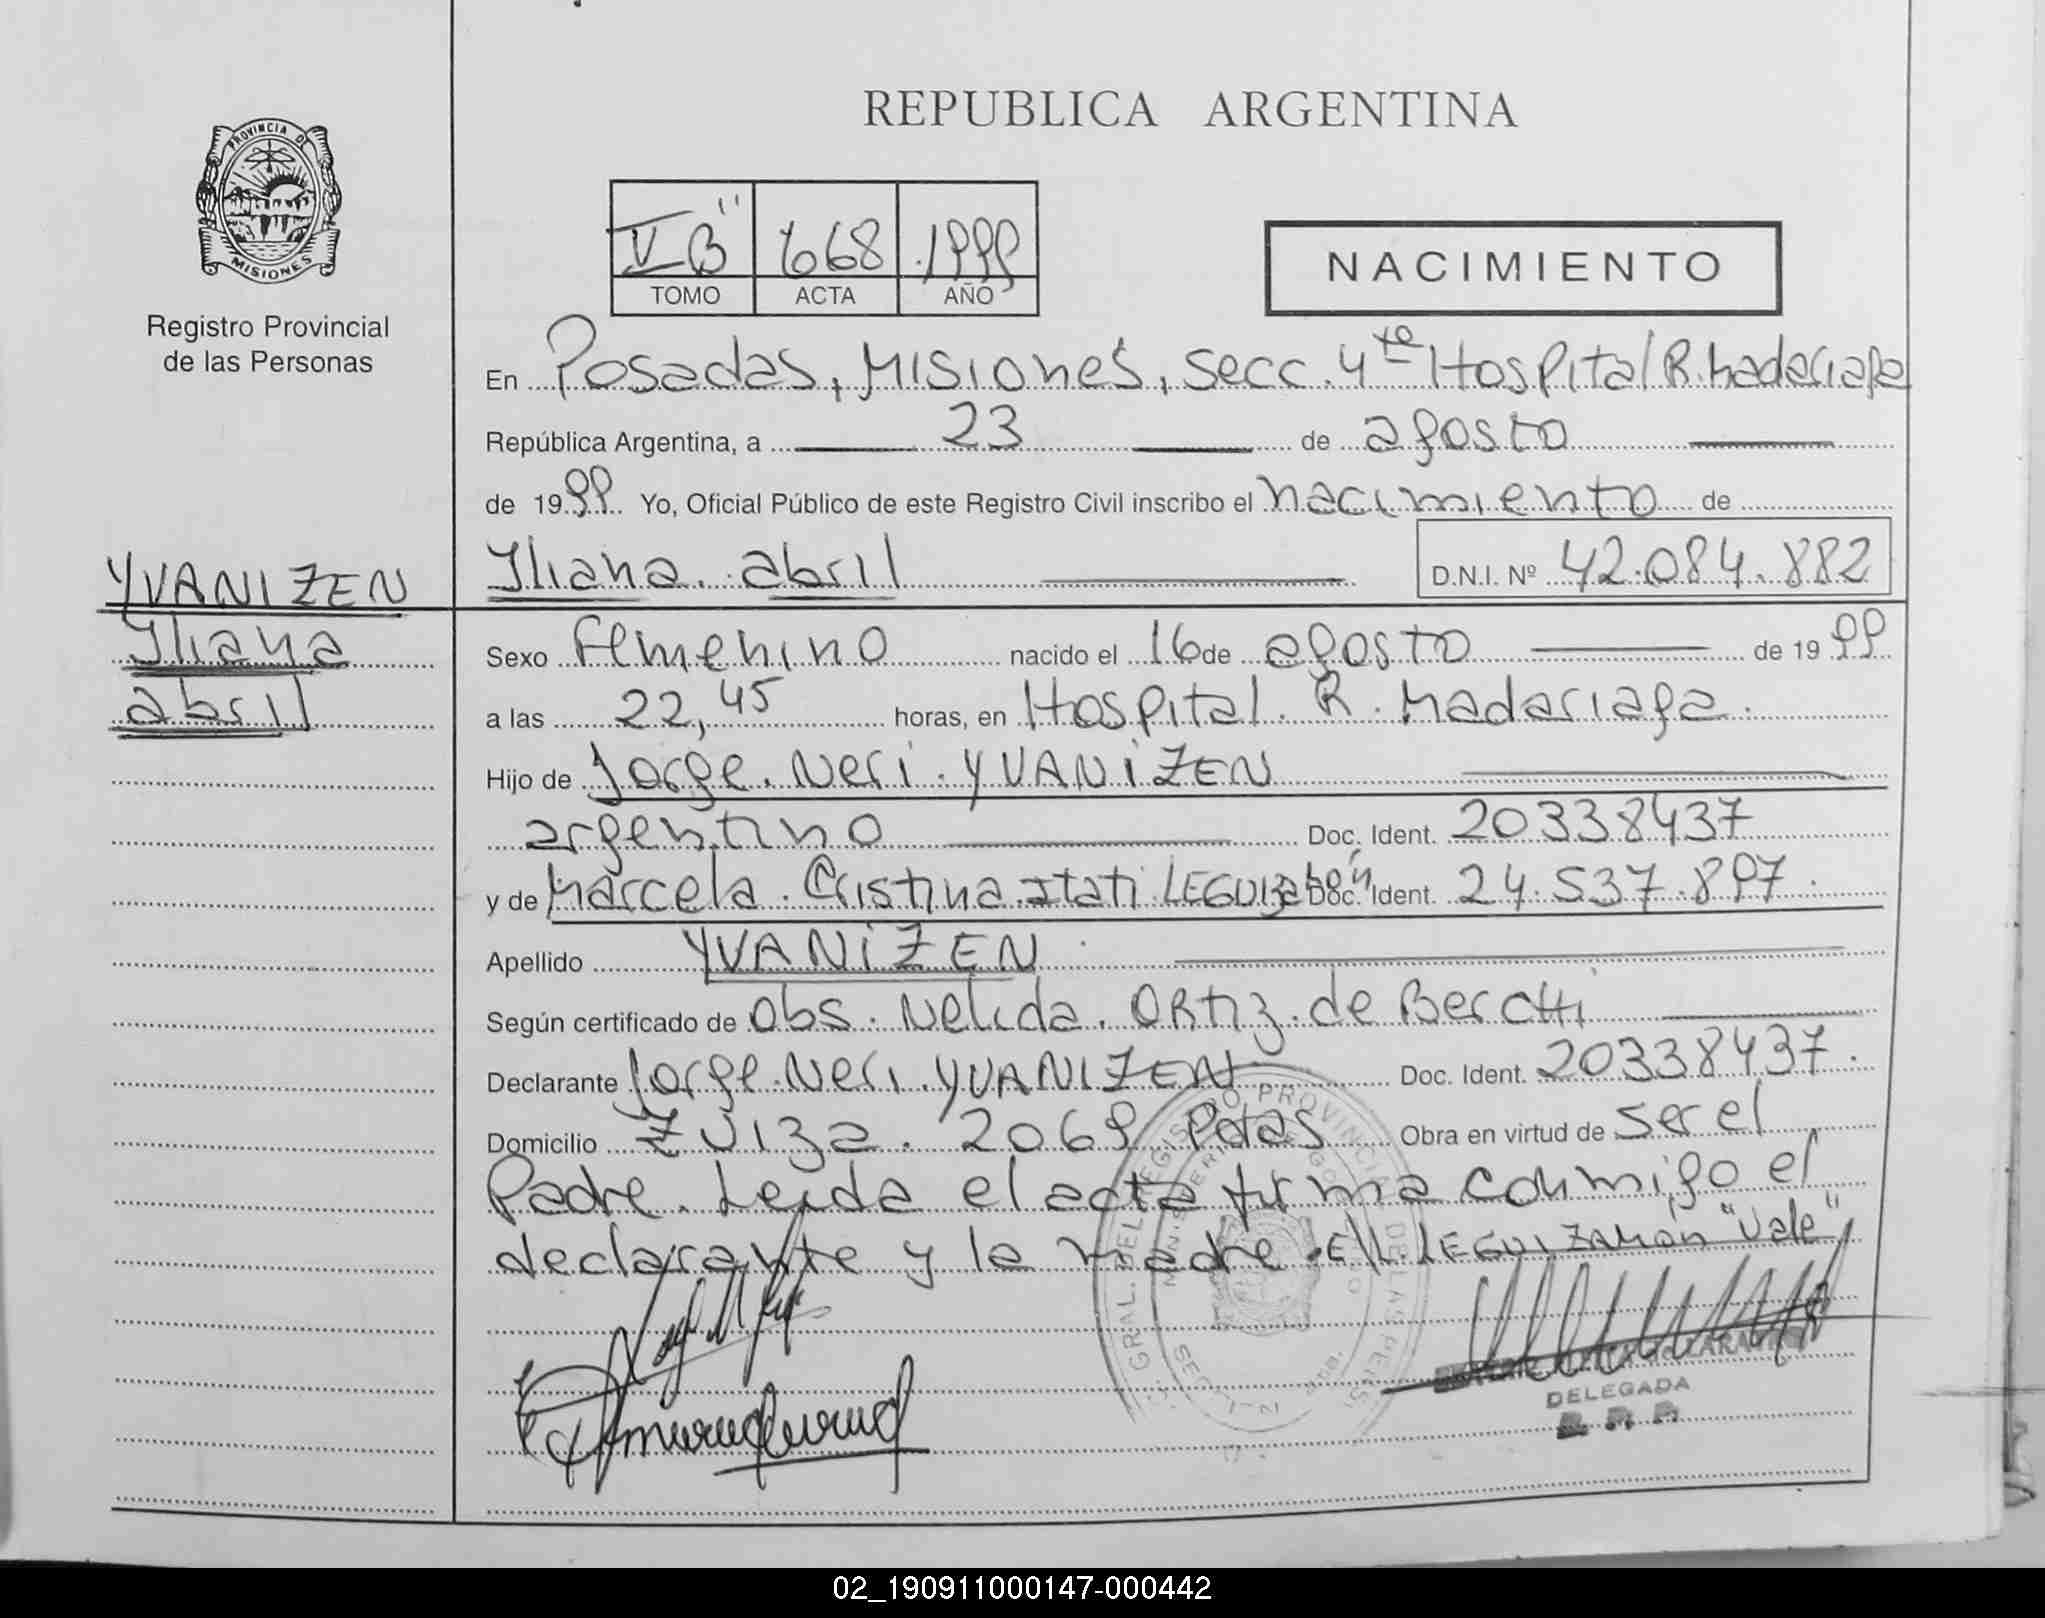 REPUBLICA ARGENTINA
PROVINCIA DE
MISIONES
Registro Provincial
de las Personas
V B" 668 1999
TOMO ACTA AÑO
NACIMIENTO
En Posadas, Misiones, secc. 4ta Hospital R. Madariaga
República Argentina, a 23 de agosto
de 1999 Yo, Oficial Público de este Registro Civil inscribo el nacimiento de
YVANIZEN
Iliana abril
D.N.I. Nº 42.084.882
Iliana
abril
Sexo Femenino nacido el 16 de agosto de 1999
a las 22,45 horas, en Hospital R. Madariaga.
Hijo de Jorge Neri YVANIZEN
argentino Doc. Ident. 20338437
y de Marcela Cristina Itati LEGUIZAMÓN Doc. Ident. 24.537.897.
Apellido YVANIZEN.
Según certificado de Obs. Nelida Ortiz de Berchi
Declarante Jorge Neri YVANIZEN Doc. Ident. 20338437.
Domicilio Zuiza 2069 Pdas Obra en virtud de ser el
Padre. Leida el acta firma conmigo el
declarante y la madre. E/l. LEGUIZAMÓN "Vale"
DELEGADA
R. P. P.
02_190911000147-000442